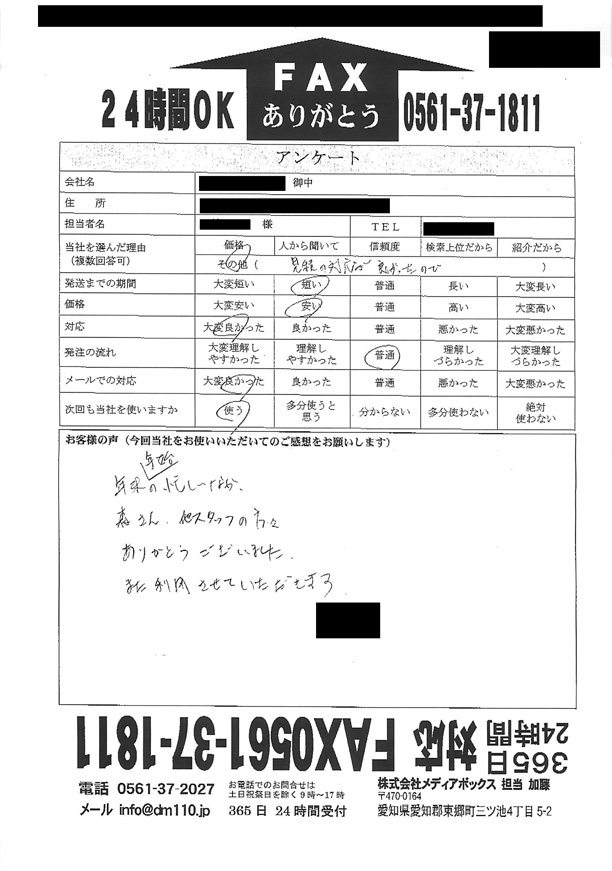 FAX
ありがとう
24時間OK
0561-37-1811
アンケート
会社名 御中
住 所
担当者名 様 TEL
当社を選んだ理由 (複数回答可) 価格 人から聞いて 信頼度 検索上位だから 紹介だから
その他( 見積の対応が良かったので )
発送までの期間 大変短い 短い 普通 長い 大変長い
価格 大変安い 安い 普通 高い 大変高い
対応 大変良かった 良かった 普通 悪かった 大変悪かった
発注の流れ 大変理解しやすかった 理解しやすかった 普通 理解しづらかった 大変理解しづらかった
メールでの対応 大変良かった 良かった 普通 悪かった 大変悪かった
次回も当社を使いますか 使う 多分使うと思う 分からない 多分使わない 絶対使わない
お客様の声(今回当社をお使いいただいてのご感想をお願いします)
年始
年末の忙しいなか、
さん、他スタッフの方々
ありがとうございました。
また利用させていただきます
365日 24時間 対応 FAX0561-37-1811
電話 0561-37-2027
お電話でのお問合せは
土日祝祭日を除く9時~17時
株式会社メディアボックス 担当 加藤
〒470-0164
メール info@dm110.jp
365日 24時間受付
愛知県愛知郡東郷町三ツ池4丁目5-2